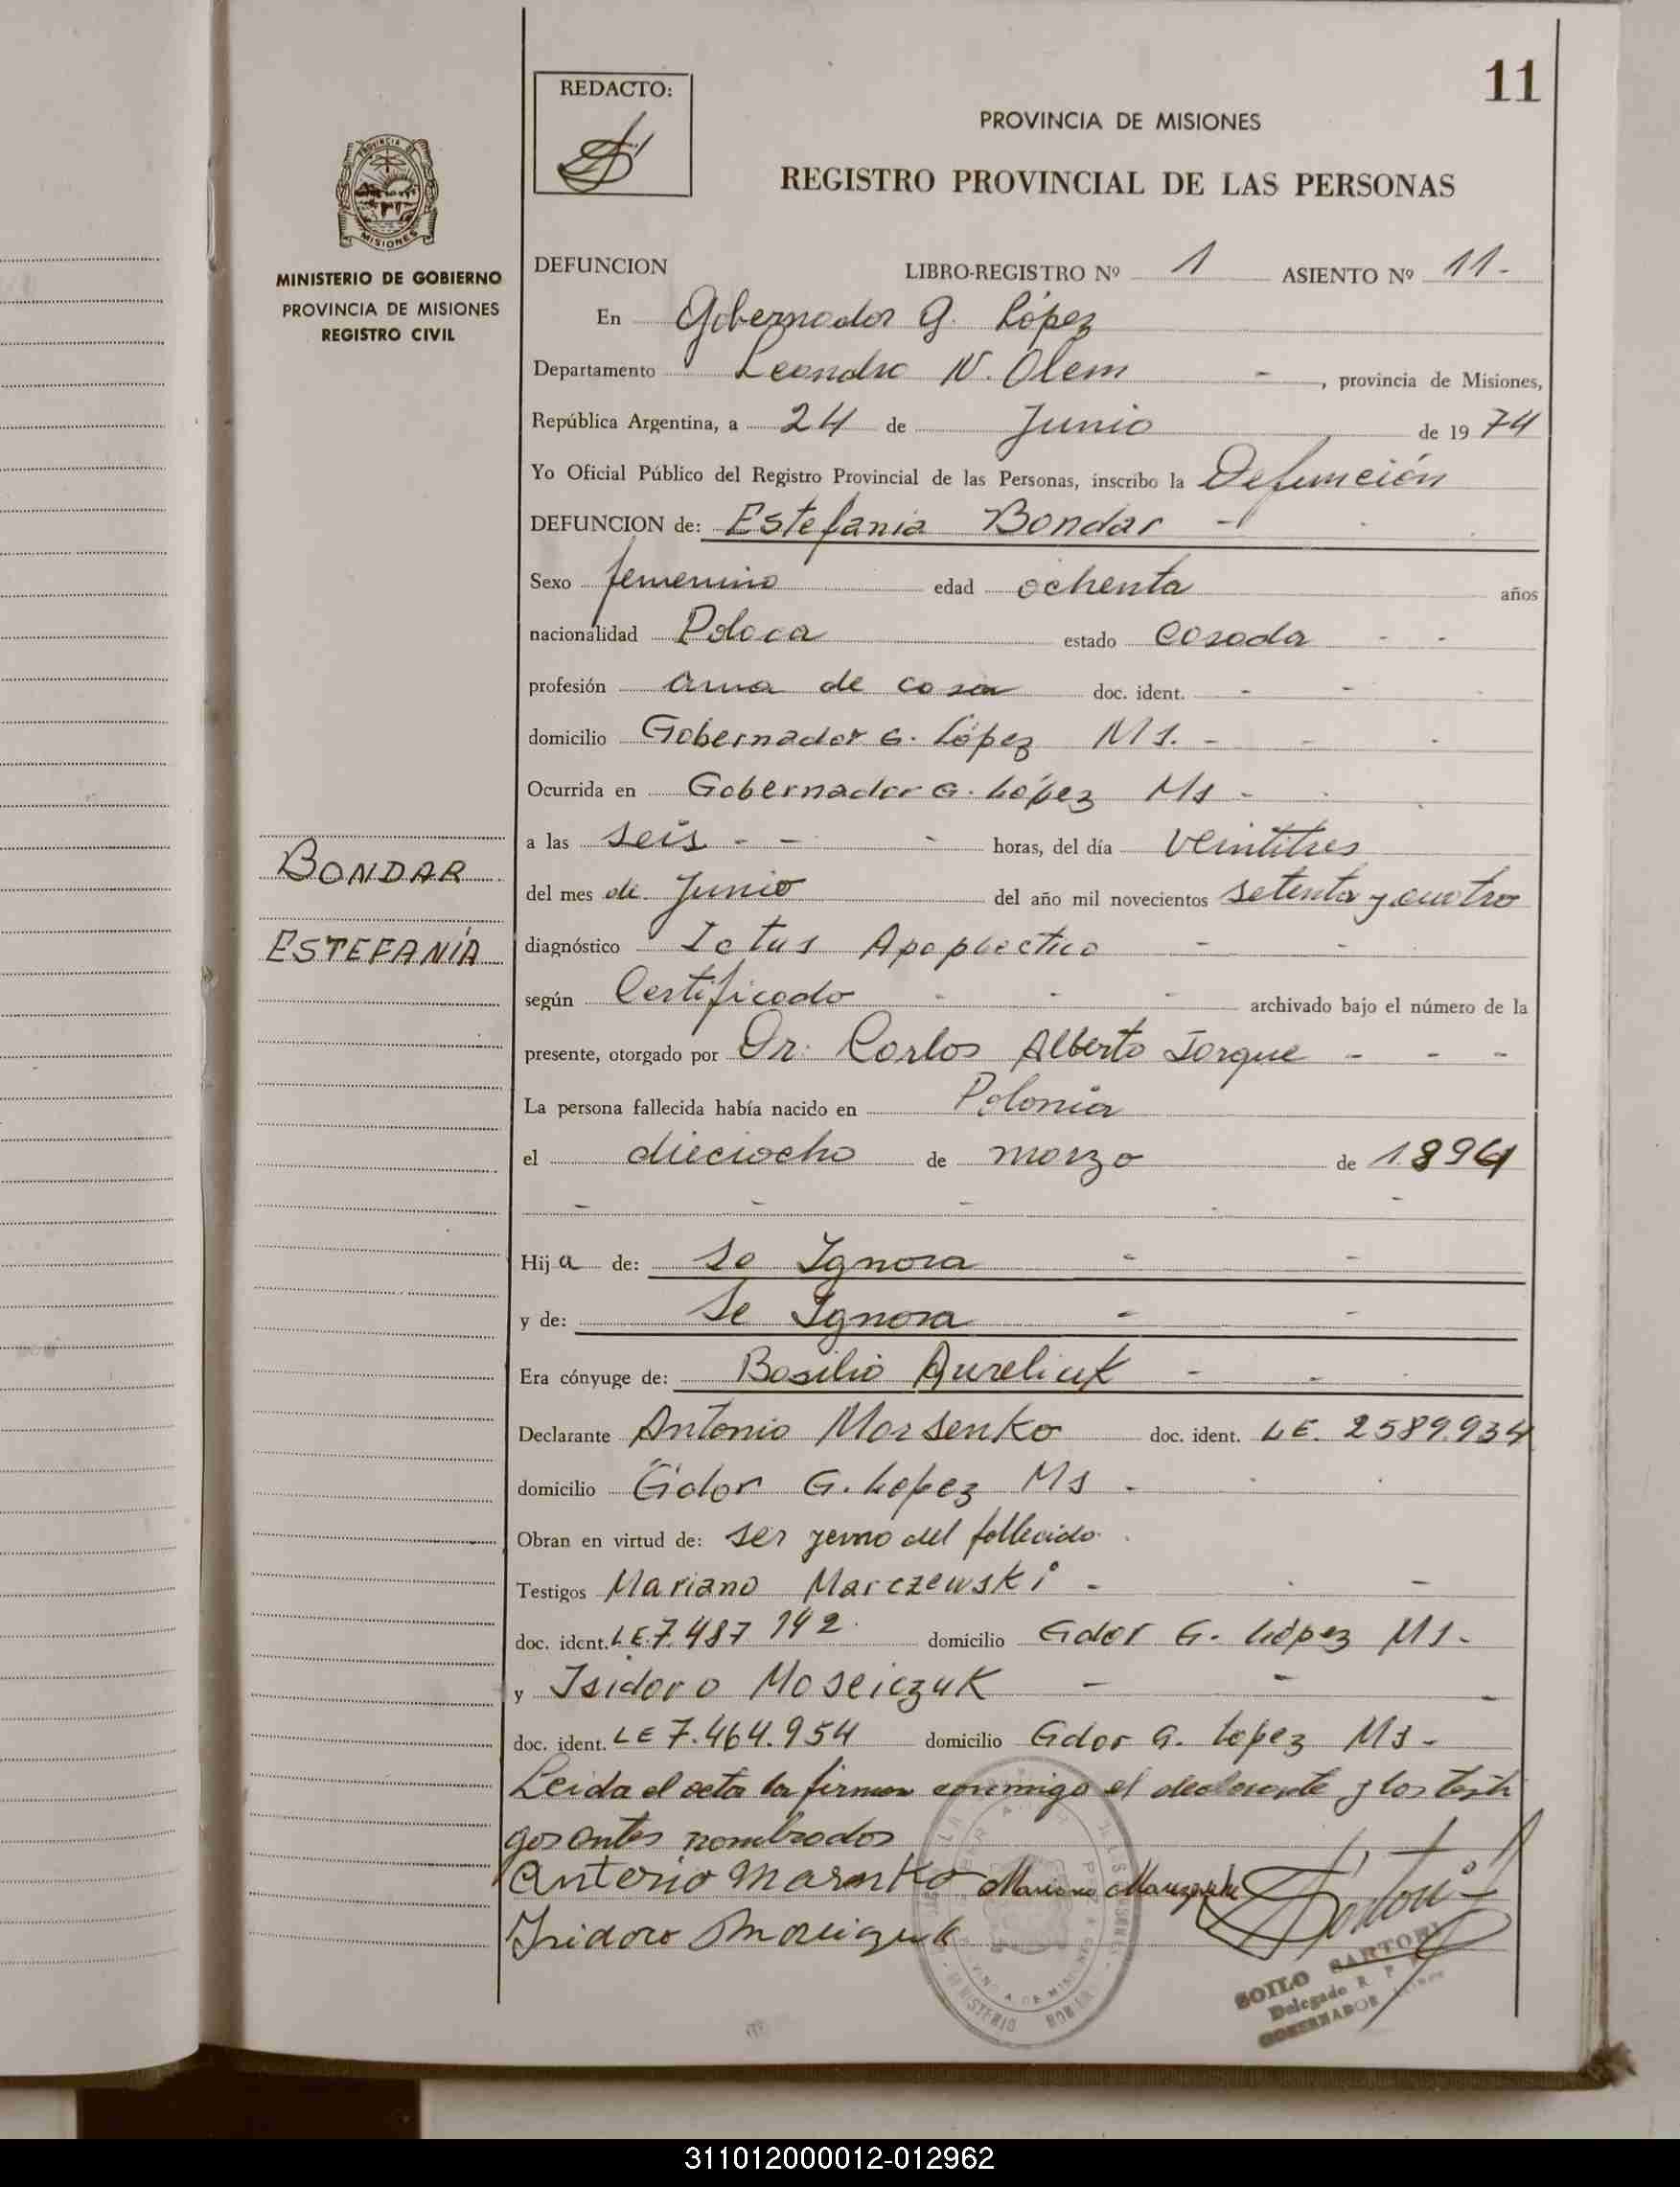 11
REDACTO:
PROVINCIA DE MISIONES
REGISTRO PROVINCIAL DE LAS PERSONAS
PROVINCIA DE
MISIONES
MINISTERIO DE GOBIERNO
PROVINCIA DE MISIONES
REGISTRO CIVIL
DEFUNCION LIBRO-REGISTRO Nº 1 ASIENTO Nº 11.-
En Gobernador G. López
Departamento Leandro N. Alem - , provincia de Misiones,
República Argentina, a 24 de Junio de 1974
Yo Oficial Público del Registro Provincial de las Personas, inscribo la Defunción
DEFUNCION de: Estefania Bondar -
Sexo femenino edad ochenta años
nacionalidad Polaca estado Casada - -
profesión ama de casa doc. ident. - -
domicilio Gobernador G. López Ms. - - -
Ocurrida en Gobernador G. López Ms -
a las seis - - - horas, del día veintitres
del mes de Junio del año mil novecientos setenta y cuatro
BONDAR
ESTEFANÍA
diagnóstico Ictus Apoplectico - -
según Certificado - - - archivado bajo el número de la
presente, otorgado por Dr. Carlos Alberto Jorque - - -
La persona fallecida había nacido en Polonia
el dieciocho de marzo de 1894
- - - - -
Hija de: Se Ignora - -
y de: Se Ignora - -
Era cónyuge de: Basilio Aureliuk - -
Declarante Antonio Marsenko doc. ident. L.E. 2589.934
domicilio Gdor G. Lopez Ms -
Obran en virtud de: ser yerno del fallecido.
Testigos Mariano Marczewski - -
doc. ident. LE.7.487 142. domicilio Gdor G. López Ms.-
y Isidoro Moseiczuk - - -
doc. ident. LE 7.464.954 domicilio Gdor G. Lopez Ms -
Leida el acta la firman conmigo el declarante y los testi
gos antes nombrados
Antonio Marsenko Mariano Sartori
Isidoro
SOILO SARTORI
Delegado R. P.
GOBERNADOR LOPEZ
311012000012-012962